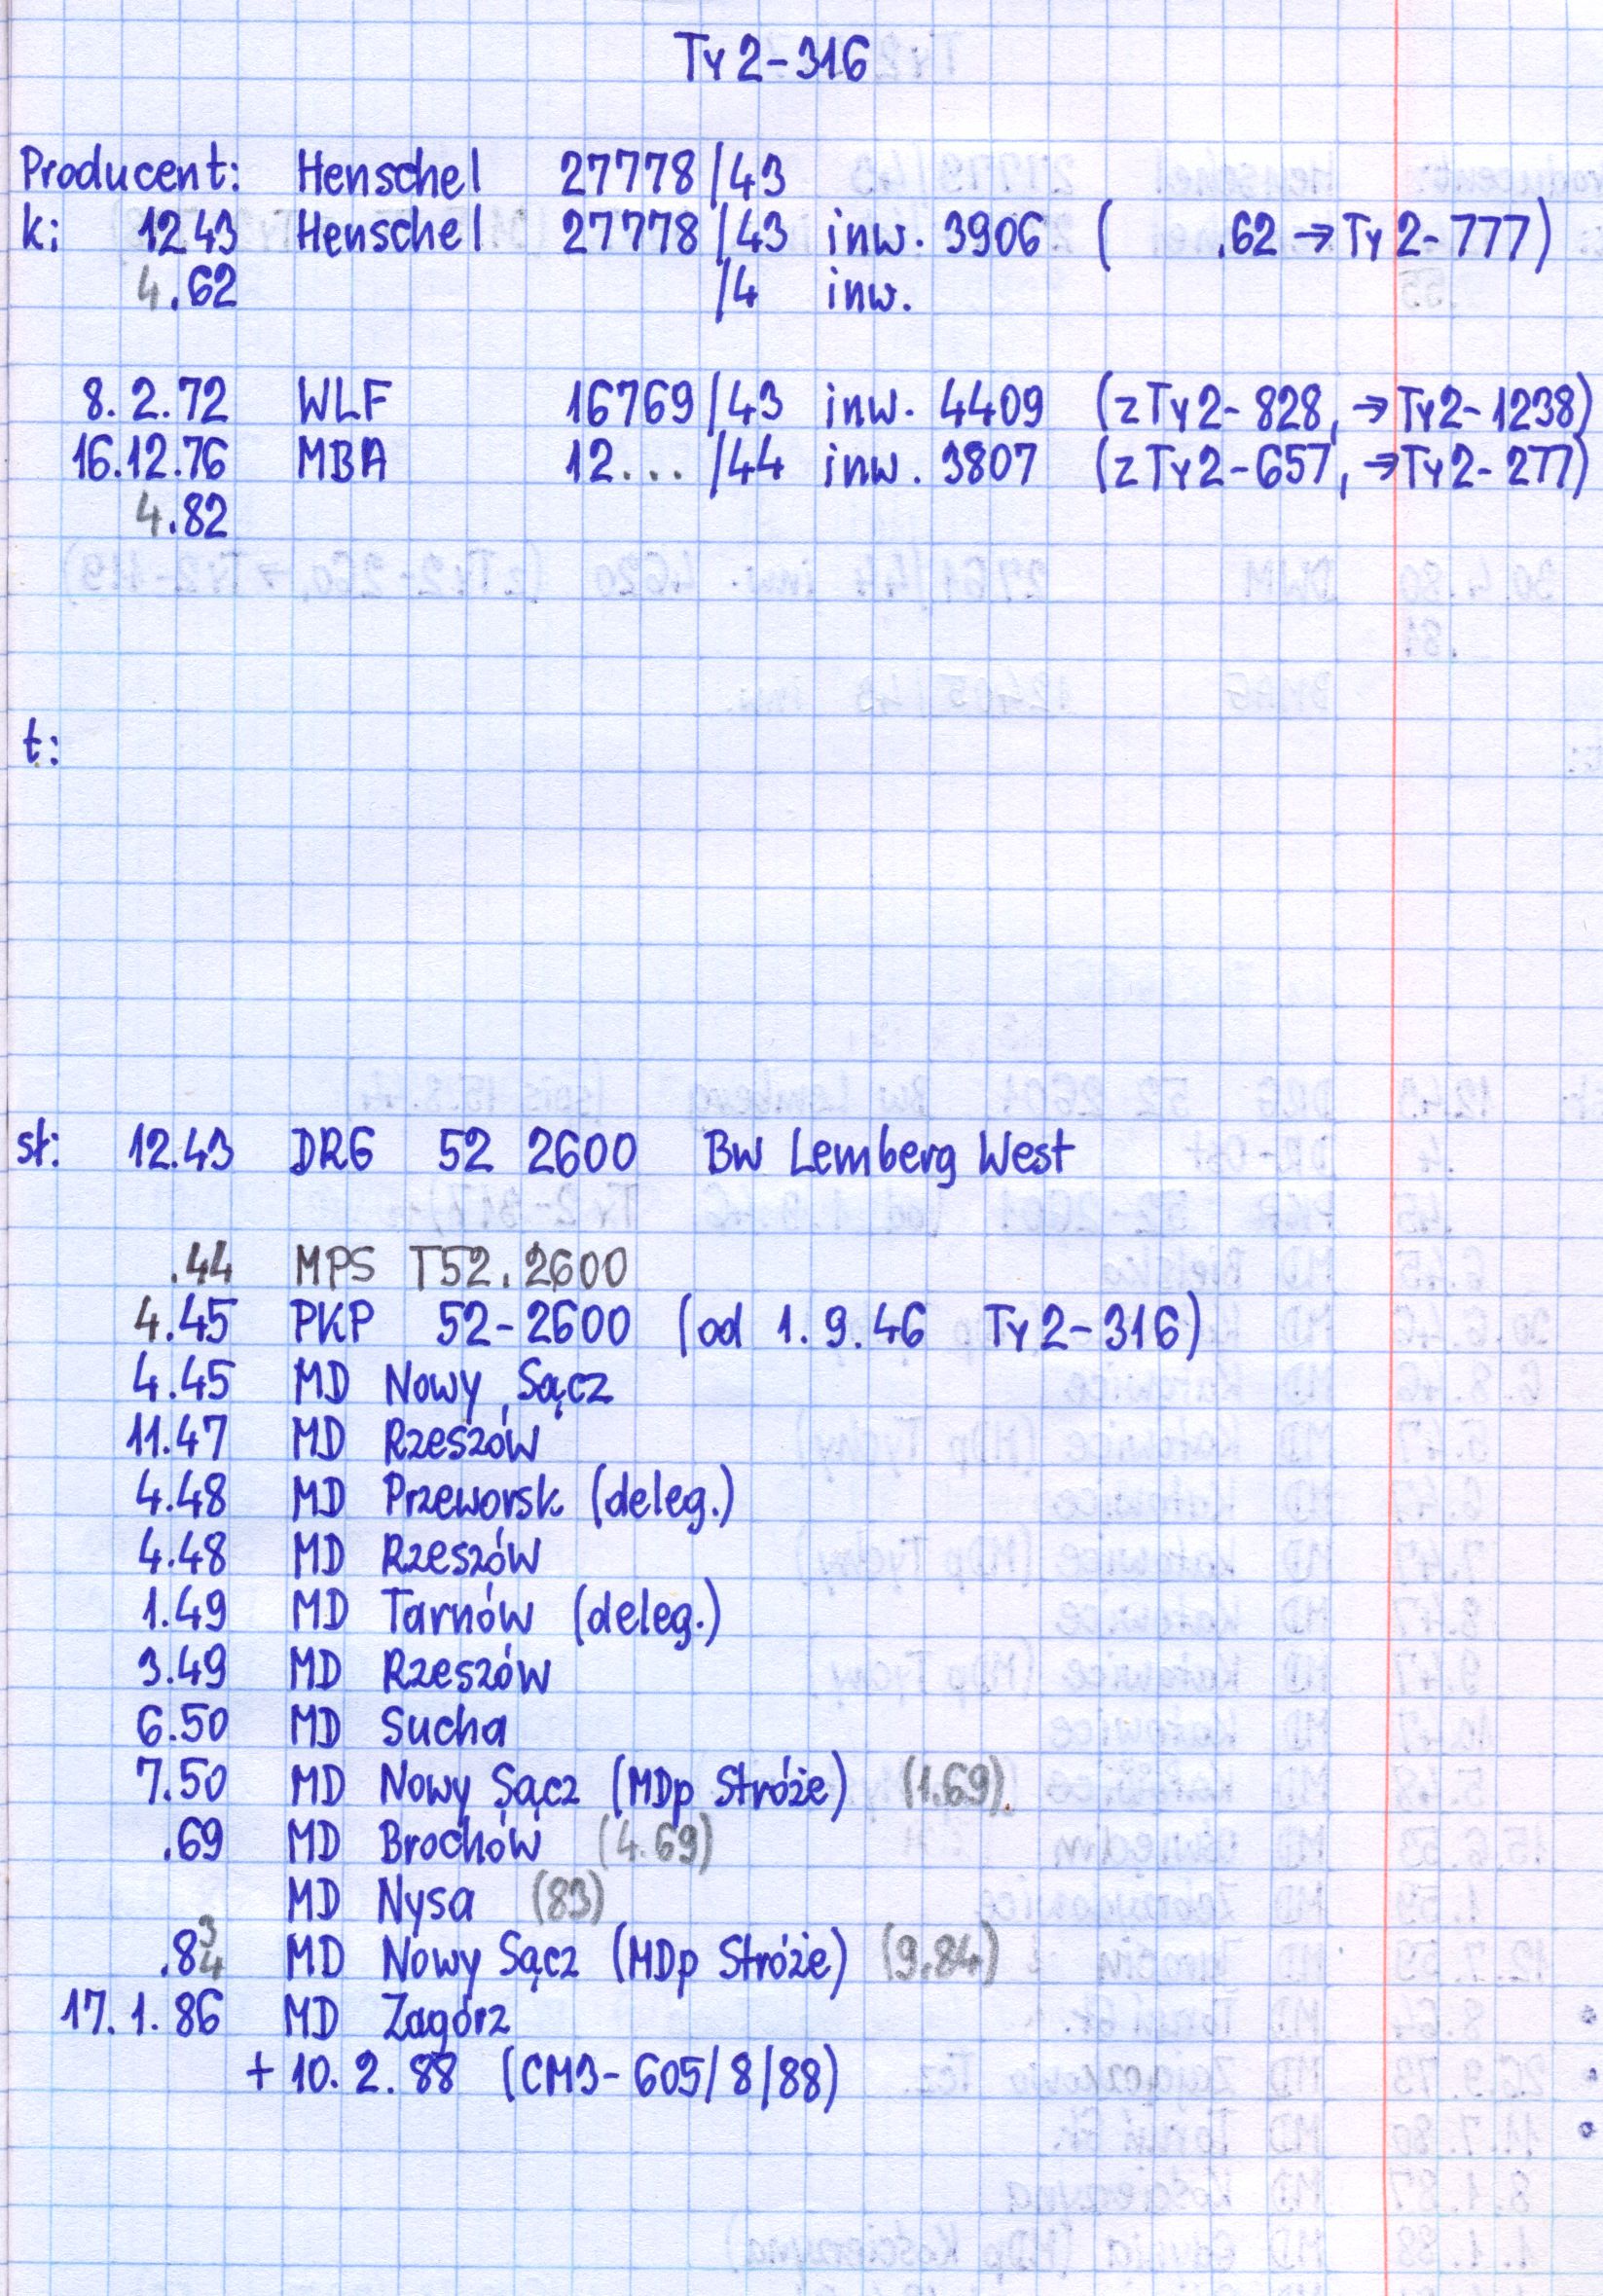 Ty2-316
Producent: Henschel 27778/43
k: 12 43 Henschel 27778/43 inw. 3906 ( .62 → Ty2-777)
4.62 /4 inw.
8. 2. 72 WLF 16769/43 inw. 4409 (z Ty2-828, → Ty2-1238)
16.12.76 MBA 12... /44 inw. 3807 (z Ty2-657, → Ty2-277)
4.82
t:
st: 12.43 DRG 52 2600 Bw Lemberg West
.44 MPS T52.2600
4.45 PKP 52-2600 (od 1. 9. 46 Ty2-316)
4.45 MD Nowy Sącz
11.47 MD Rzeszów
4.48 MD Przeworsk (deleg.)
4.48 MD Rzeszów
1.49 MD Tarnów (deleg.)
3.49 MD Rzeszów
6.50 MD Sucha
7.50 MD Nowy Sącz (MDp Stróże) (1.69)
.69 MD Brochów (4.69)
MD Nysa (83)
.8 3 4 MD Nowy Sącz (MDp Stróże) (9.84)
17. 1. 86 MD Zagórz
+ 10. 2. 88 (CM3-605/8/88)